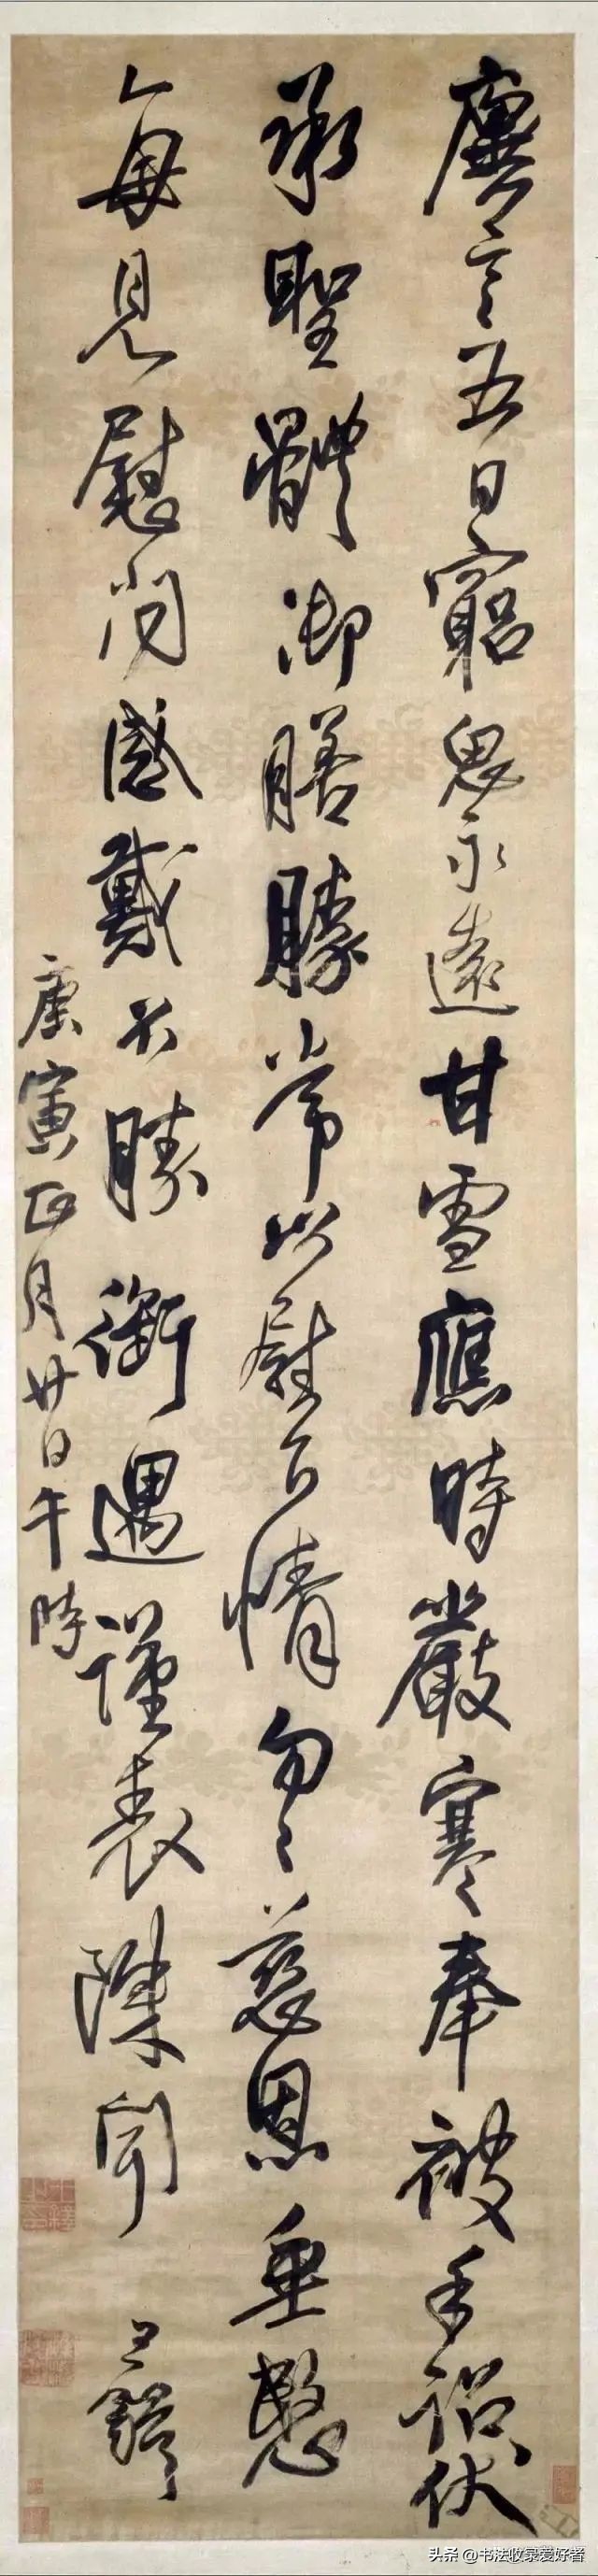 廙言五日窮思永遠甘雪應時嚴寒奉被手詔伏
承聖體御膳勝常以慰下情勿〻慈恩垂愍
每見慰問感戴不勝銜遇謹表陳聞 王鐸
庚寅正月廿日午時
头条 @书法收录爱好者